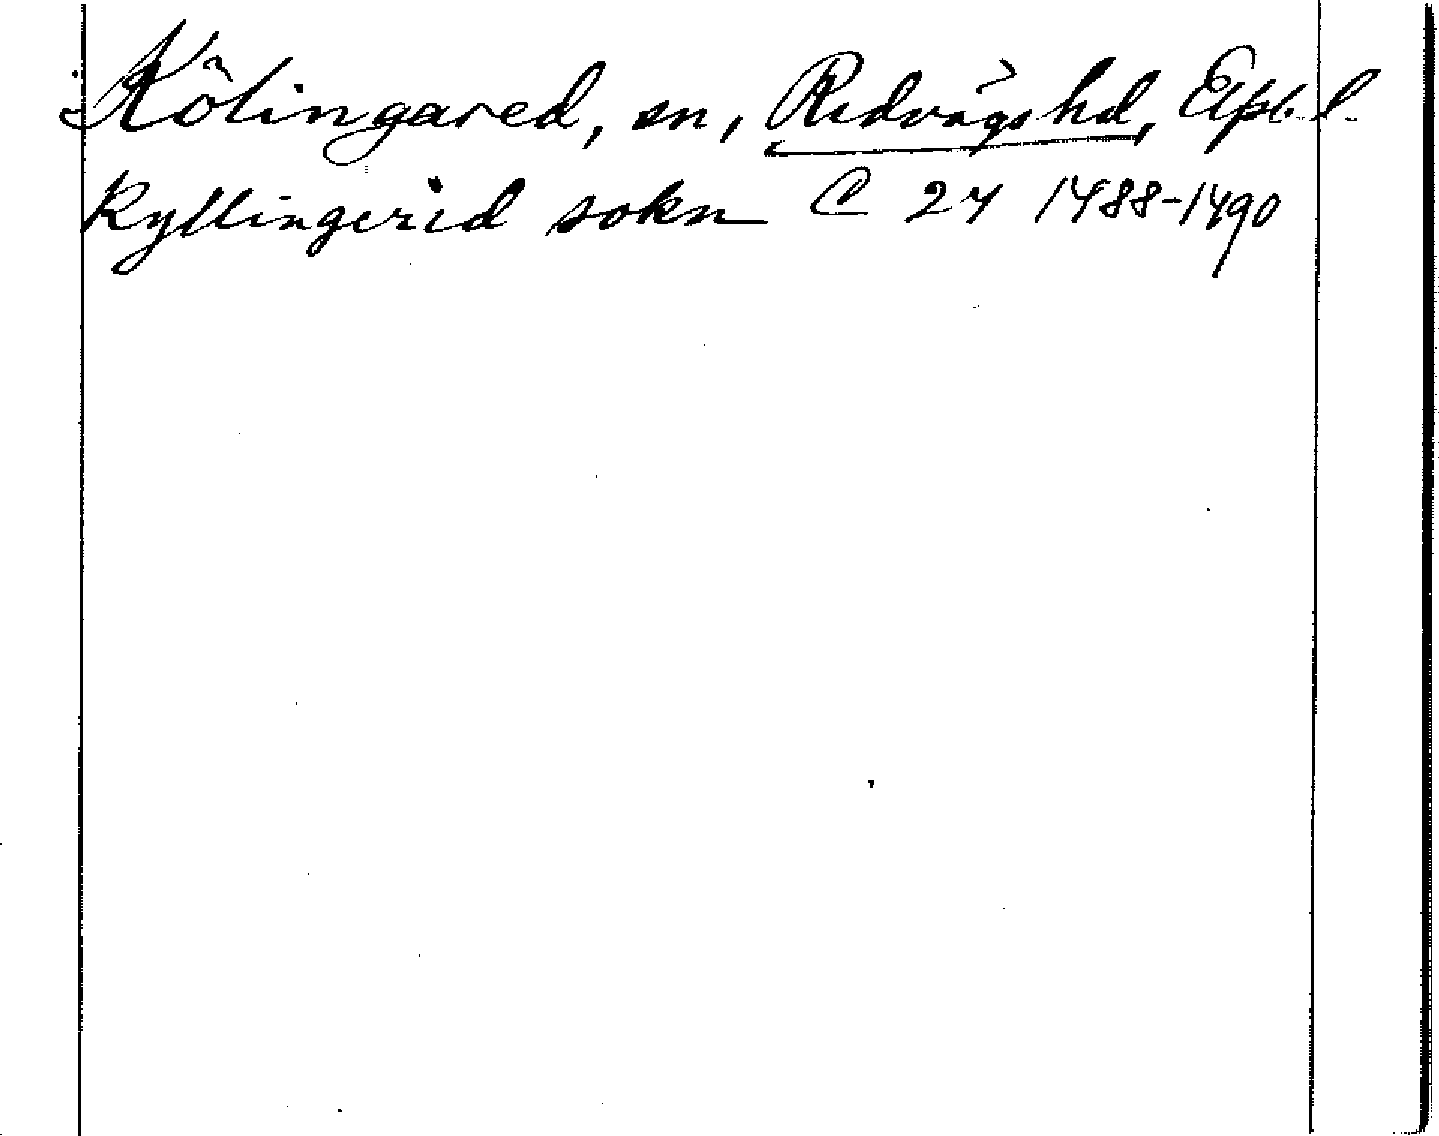 Kölingared, sn, Redvägs hd, Elfsb. l.
Kyllingerid sokn C 24 1488-1490